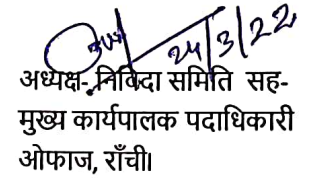 24/3/22
अध्यक्ष- निविदा समिति सह-
मुख्य कार्यपालक पदाधिकारी
ओफाज, राँची।